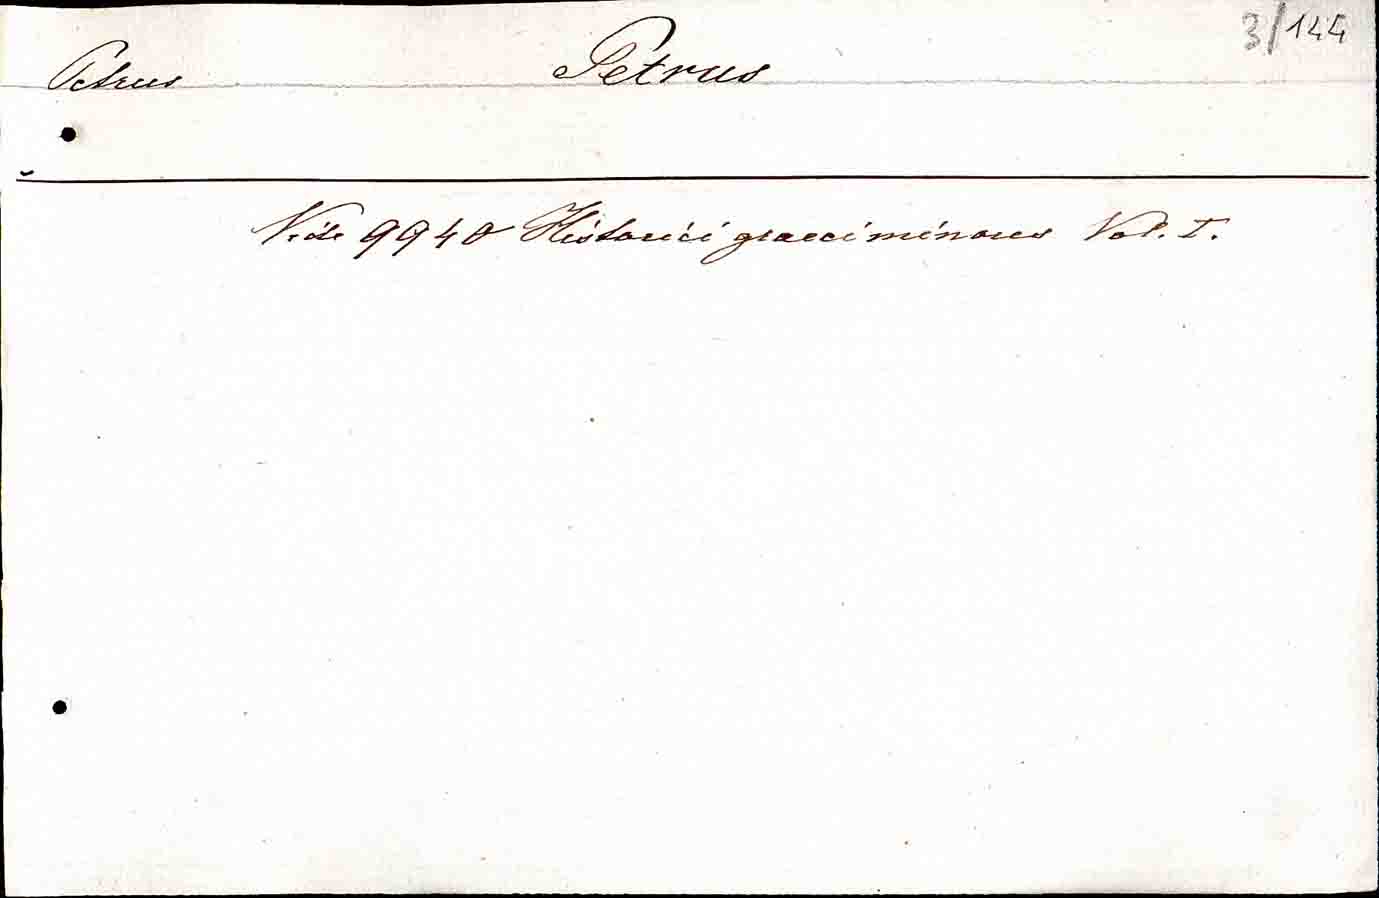 3/144
Petrus Petrus
Vide 9940 Historici graeci minores Vol. I.